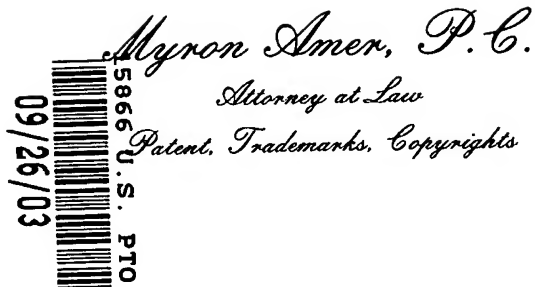 Myron Amer, P.C.
Attorney at Law
Patent, Trademarks, Copyrights
15866 U.S. PTO
09/26/03